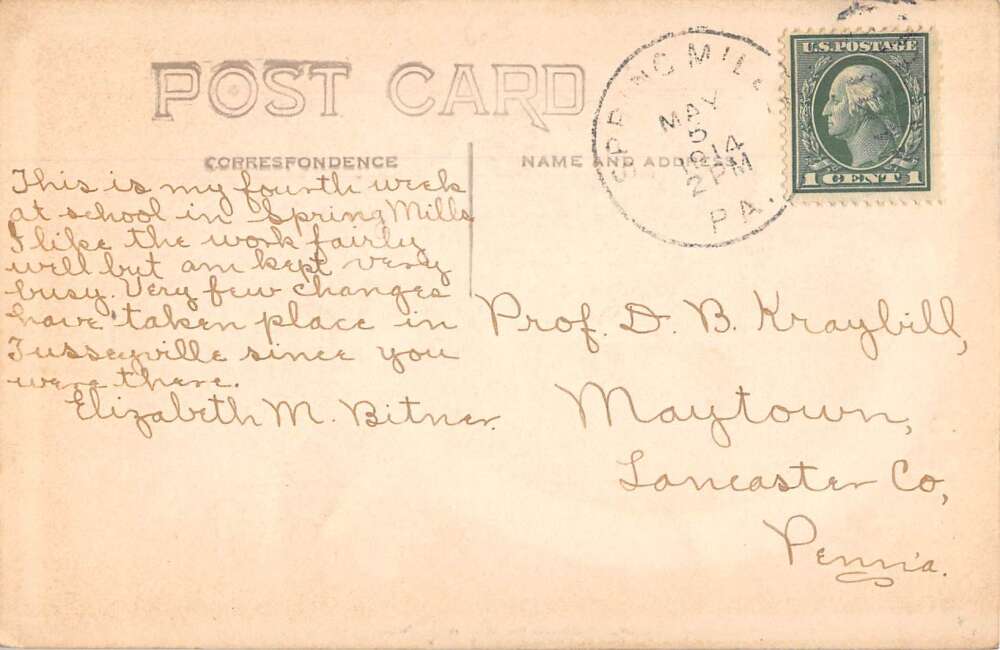 POST CARD
CORRESPONDENCE
NAME AND ADDRESS
SPRING MILLS
MAY
5
1914
2 PM
PA.
U.S.POSTAGE
1 CENT 1
This is my fourth week
at school in Spring Mills
I like the work fairly
well but am kept very
busy. Very few changes
have taken place in
Tusseyville since you
were there.
Elizabeth M. Bitner.
Prof. D. B. Kraybill,
Maytown,
Lancaster Co,
Penn'a.